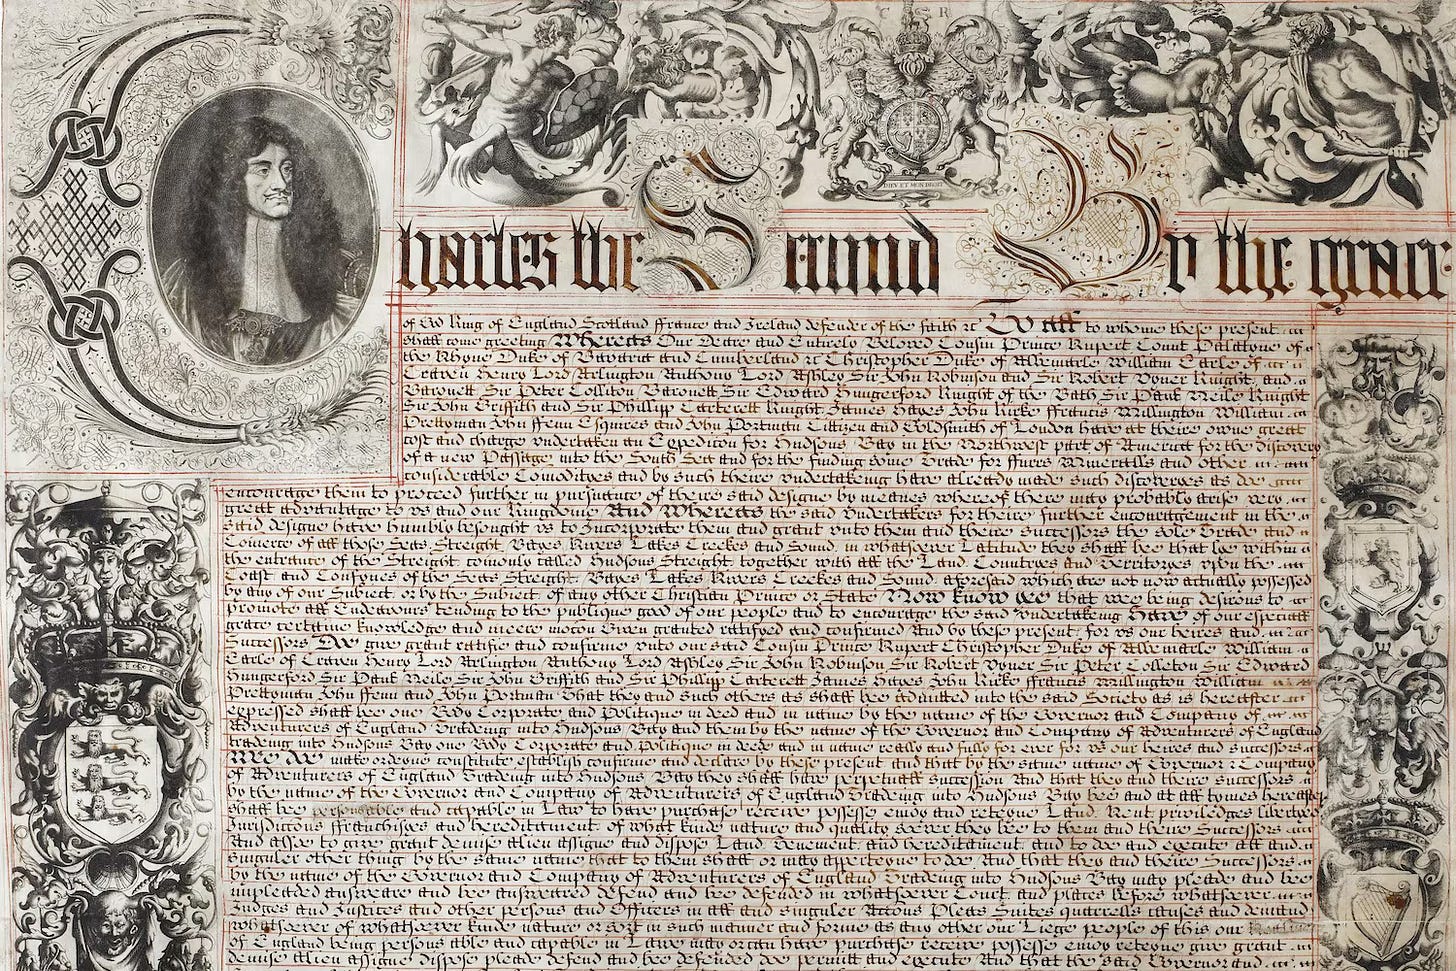 C R
DIEV ET MON DROIT
Charles the Second By the grace
of God King of England Scotland ffrance and Ireland defender of the faith &c To all to whome these present
shall come greeting Whereas Our Deare and Entirely Beloved Cousin Prince Rupert Count Palatyne of
the Rhyne Duke of Bavaria and Cumberland &c Christopher Duke of Albemarle William Earle of
Craven Henry Lord Arlington Anthony Lord Ashley Sir John Robinson and Sir Robert Vyner Knight and
Baronett Sir Peter Colliton Baronett Sir Edward Hungerford Knight of the Bath Sir Paul Neile Knight
Sir John Griffith and Sir Phillipp Carterett Knight James Hayes John Kirke ffrancis Millington William
Prettyman John ffenn Esquires and John Portman Cittizen and Goldsmith of London have at theire owne great
cost and charge undertaken an Expedicon for Hudsons Bay in the Northwest part of America for the Discovery
of a new Passage into the South Sea and for the finding some Trade for ffurrs Mineralls and other
considerable Comodityes and by such theire undertakeing have already made such discoveryes as doe
encourage them to proceed further in pursuance of theire said designe by meanes whereof there may probably arise very
great advantage to us and our Kingdome And Whereas the said undertakers for theire further encouragement in the
said designe have humbly besought us to Incorporate them and grant unto them and theire successors the sole Trade and
Comerce of all those Seas Streight Bayes Rivers Lakes Creekes and Sound in whatsoever Latitude they shall bee that lye within
the entrance of the Streight comonly called Hudsons Streight together with all the Land Countryes and Territoryes upon the
Coast and Confynes of the Seas Streight Bayes Lakes Rivers Creekes and Sound aforesaid which are not now actually possessed
by any of our Subject or by the Subject of any other Christian Prince or State Now know yee that wee being desirous to
promote all Endeavours tending to the publique good of our people and to encourage the said undertaking Have of our especiall
grace certaine knowledge and meere mocon Given granted ratifyed and confirmed And by these present for us our heires and
Successors Doe give grant ratifie and confirme unto our said Cousin Prince Rupert Christopher Duke of Albemarle William
Earle of Craven Henry Lord Arlington Anthony Lord Ashley Sir John Robinson Sir Robert Vyner Sir Peter Colleton Sir Edward
Hungerford Sir Paul Neile Sir John Griffith and Sir Phillipp Carterett James Hayes John Kirke ffrancis Millington William
Prettyman John ffenn and John Portman That they and such others as shall bee admitted into the said Society as is hereafter
expressed shall bee one Body Corporate and Politique in deed and in name by the name of the Governor and Company of
Adventurers of England Tradeing into Hudsons Bay and them by the name of the Governor and Company of Adventurers of England
tradeing into Hudsons Bay one Body Corporate and Politique in deede and in name really and fully for ever for us our heires and successors
Wee Doe make ordeyne constitute establish confirme and declare by these present and that by the same name of Governor & Company
of Adventurers of England Tradeing into Hudsons Bay they shall have perpetuall succession And that they and theire successors
by the name of the Governor and Company of Adventurers of England Tradeing into Hudsons Bay bee and at all tymes hereafter
shall bee personable and capable in Law to have purchase receive possesse enjoy and reteyne Land Rent priviledges libertyes
Jurisdicons ffranchisyes and hereditament of what kinde nature and quality soever they bee to them and theire Successors
And alsoe to give grant demise alien assigne and dispose Land Tenement and hereditament and to doe and execute all and
singuler other thing by the same name that to them shall or may apperteyne to doe And that they and theire Successors
by the name of the Governor and Company of Adventurers of England Tradeing into Hudsons Bay may plead and bee
impleaded answeare and bee answeared defend and bee defended in whatsoever Court and places before whatsoever
Judges and Justices and other persons and Officers in all and singuler Accons Pleas Suites Quarrells causes and demand
whatsoever of whatsoever kinde nature or sort in such manner and forme as any other our Liege people of this our
of England being persons able and capable in Lawe may or can have purchase receive possesse enjoy reteyne give grant
demise alien assigne dispose plead defend and bee defended doe permitt and execute And that the said Governor